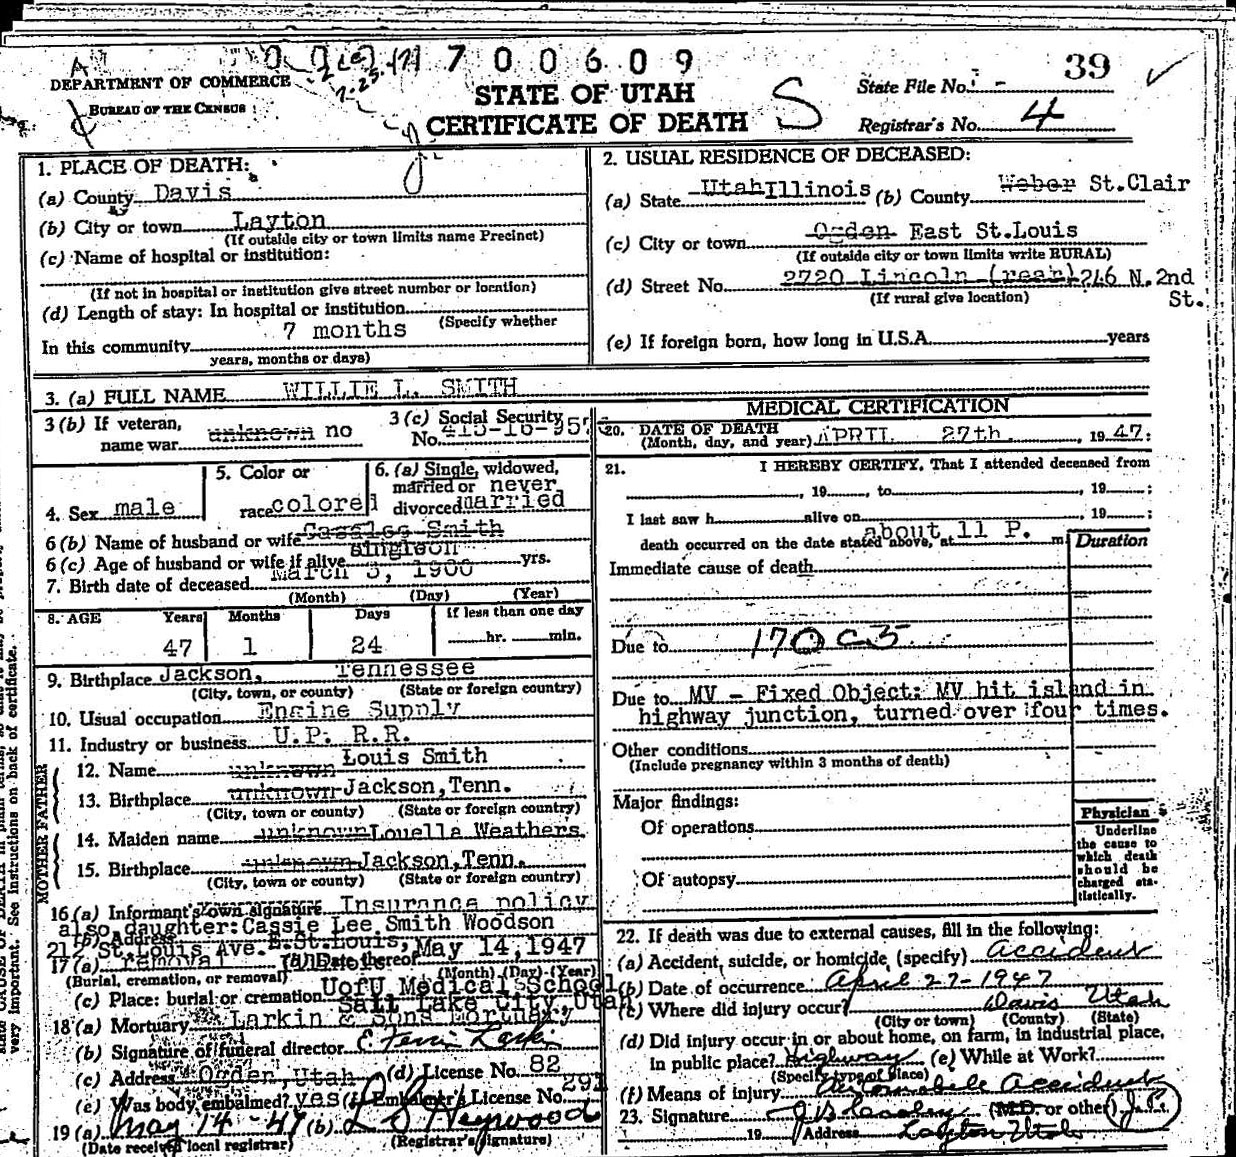 700609
39
DEPARTMENT OF COMMERCE
BUREAU OF THE CENSUS
STATE OF UTAH
CERTIFICATE OF DEATH
S
State File No.
Registrar's No. 4
1. PLACE OF DEATH:
(a) County Davis
(b) City or town Layton
(If outside city or town limits name Precinct)
(c) Name of hospital or institution:
(If not in hospital or institution give street number or location)
(d) Length of stay: In hospital or institution
(Specify whether
In this community 7 months
years, months or days)
2. USUAL RESIDENCE OF DECEASED:
(a) State Utah Illinois (b) County Weber St.Clair
(c) City or town Ogden East St.Louis
(If outside city or town limits write RURAL)
(d) Street No. 2720 Lincoln (rear) 246 N. 2nd St.
(If rural give location)
(e) If foreign born, how long in U.S.A. years
3. (a) FULL NAME WILLIE L. SMITH
3 (b) If veteran, name war unknown no
3 (c) Social Security No.
4. Sex male
5. Color or race colored
6. (a) Single, widowed, married or divorced never married
6 (b) Name of husband or wife Smith
6 (c) Age of husband or wife if alive yrs.
7. Birth date of deceased March 3, 1900
(Month) (Day) (Year)
8. AGE Years Months Days If less than one day
47 1 24 hr. min.
9. Birthplace Jackson, Tennessee
(City, town, or county) (State or foreign country)
10. Usual occupation Engine Supply
11. Industry or business U.P. R.R.
FATHER
12. Name unknown Louis Smith
13. Birthplace unknown Jackson,Tenn.
(City, town or county) (State or foreign country)
MOTHER
14. Maiden name unknown Louella Weathers
15. Birthplace unknown Jackson,Tenn.
(City, town or county) (State or foreign country)
16 (a) Informant's own signature Insurance policy
also daughter:Cassie Lee Smith Woodson
(b) Address St. Louis Ave. E.St.Louis,
17 (a) removal (b) Date thereof May 14,1947
(Burial, cremation, or removal) (Month) (Day) (Year)
(c) Place: burial or cremation UofU Medical School
Salt Lake City,Utah
18 (a) Mortuary Larkin & Sons Mortuary
(b) Signature of funeral director E. Larkin
(c) Address Ogden,Utah (d) License No. 82
(e) Was body embalmed? yes (f) Embalmer's License No. 291
19 (a) May 14-47 (b) Heywood
(Date received local registrar) (Registrar's signature)
MEDICAL CERTIFICATION
20. DATE OF DEATH
(Month, day, and year) APRIL 27th, 1947:
21. I HEREBY CERTIFY, That I attended deceased from
, 19 , to , 19 ;
I last saw h alive on , 19 ;
death occurred on the date stated above, at about 11 P. m.
Duration
Immediate cause of death
Due to 170 c-5
Due to MV - Fixed Object: MV hit island in
highway junction, turned over four times.
Other conditions
(Include pregnancy within 3 months of death)
Major findings:
Of operations
Of autopsy
Physician
Underline
the cause to
which death
should be
charged sta-
tistically.
22. If death was due to external causes, fill in the following:
(a) Accident, suicide, or homicide, (specify) Accident
(b) Date of occurrence April 27-1947
(c) Where did injury occur? Davis Utah
(City or town) (County) (State)
(d) Did injury occur in or about home, on farm, in industrial place,
in public place? Highway (e) While at Work?
(Specify type of place)
(f) Means of injury Automobile Accident
23. Signature (M.D. or other) J.P.
19 Address Layton Utah